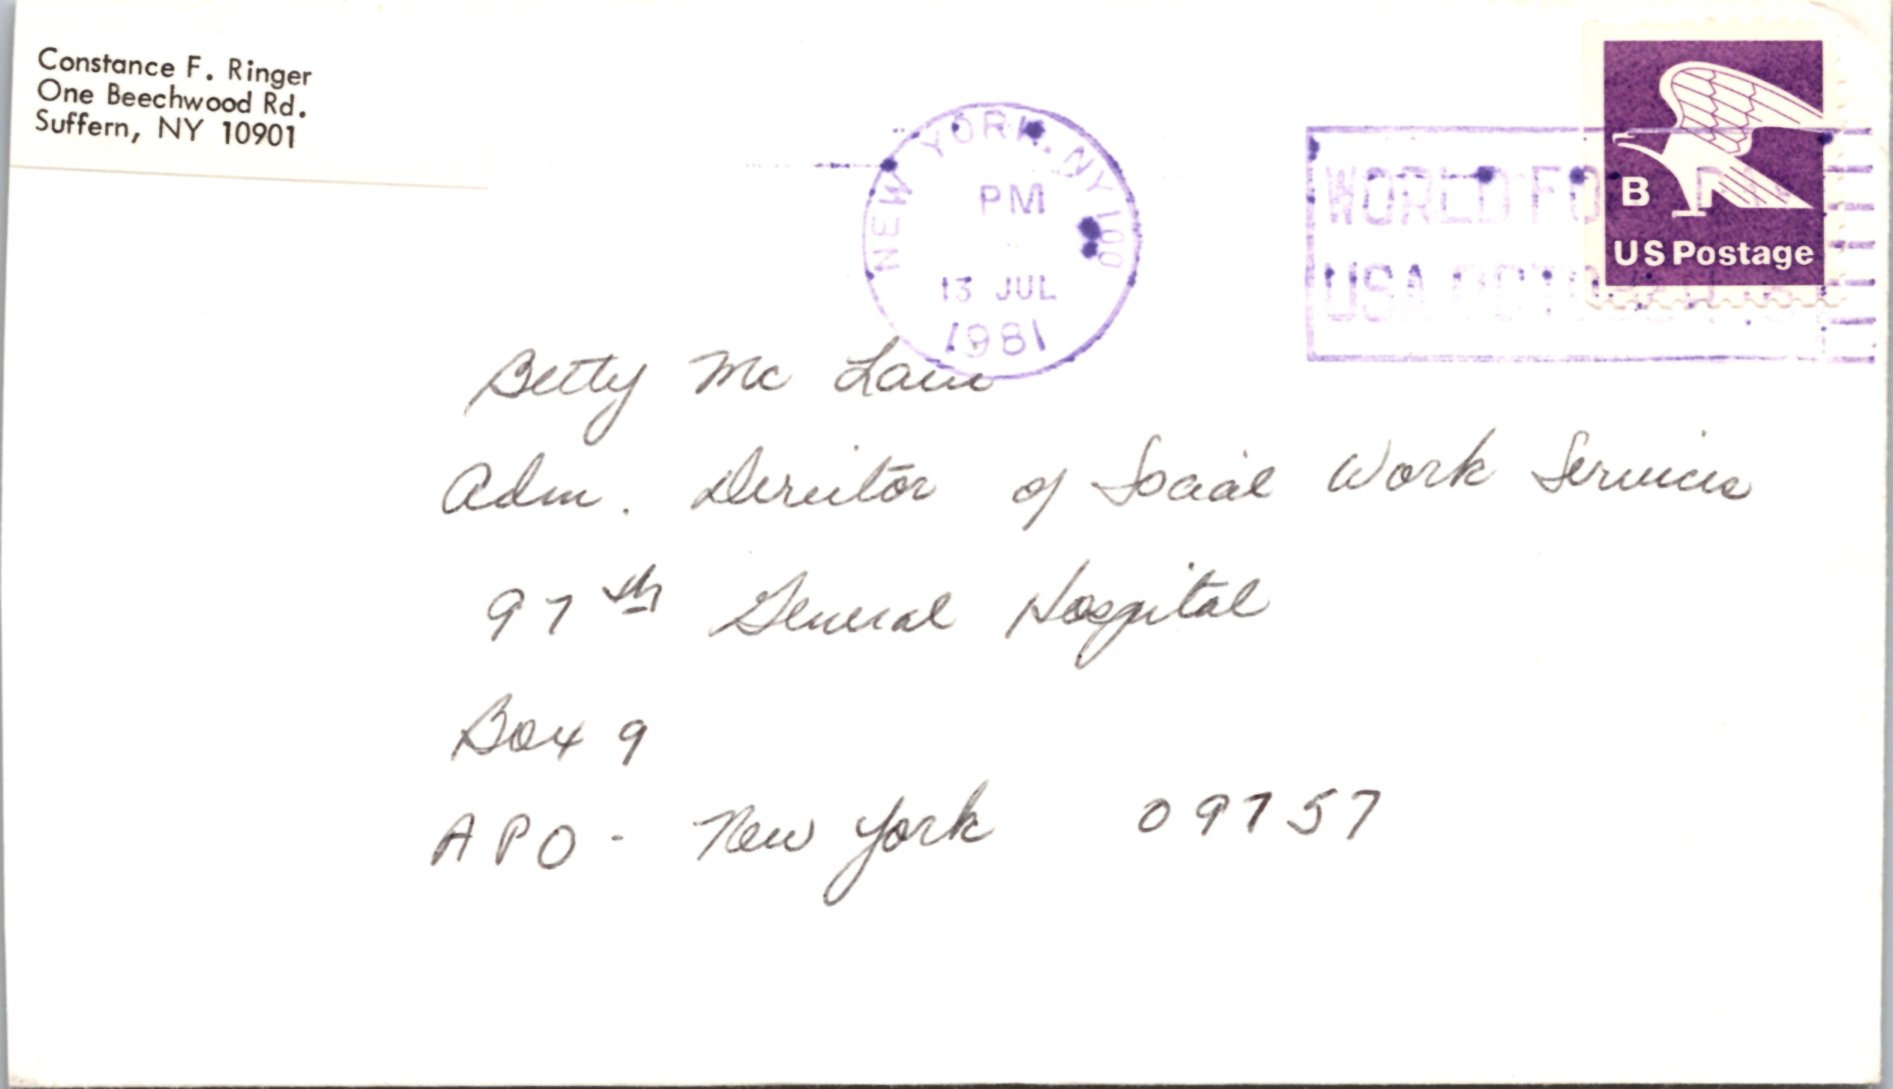 Constance F. Ringer
One Beechwood Rd.
Suffern, NY 10901
NEW YORK, NY 100
PM
13 JUL
1981
WORLD FO
USA OCTO
B
US Postage
Betty Mc
Adm. Director of Social Work Services
97th General Hospital
Box 9
APO - New York 09757